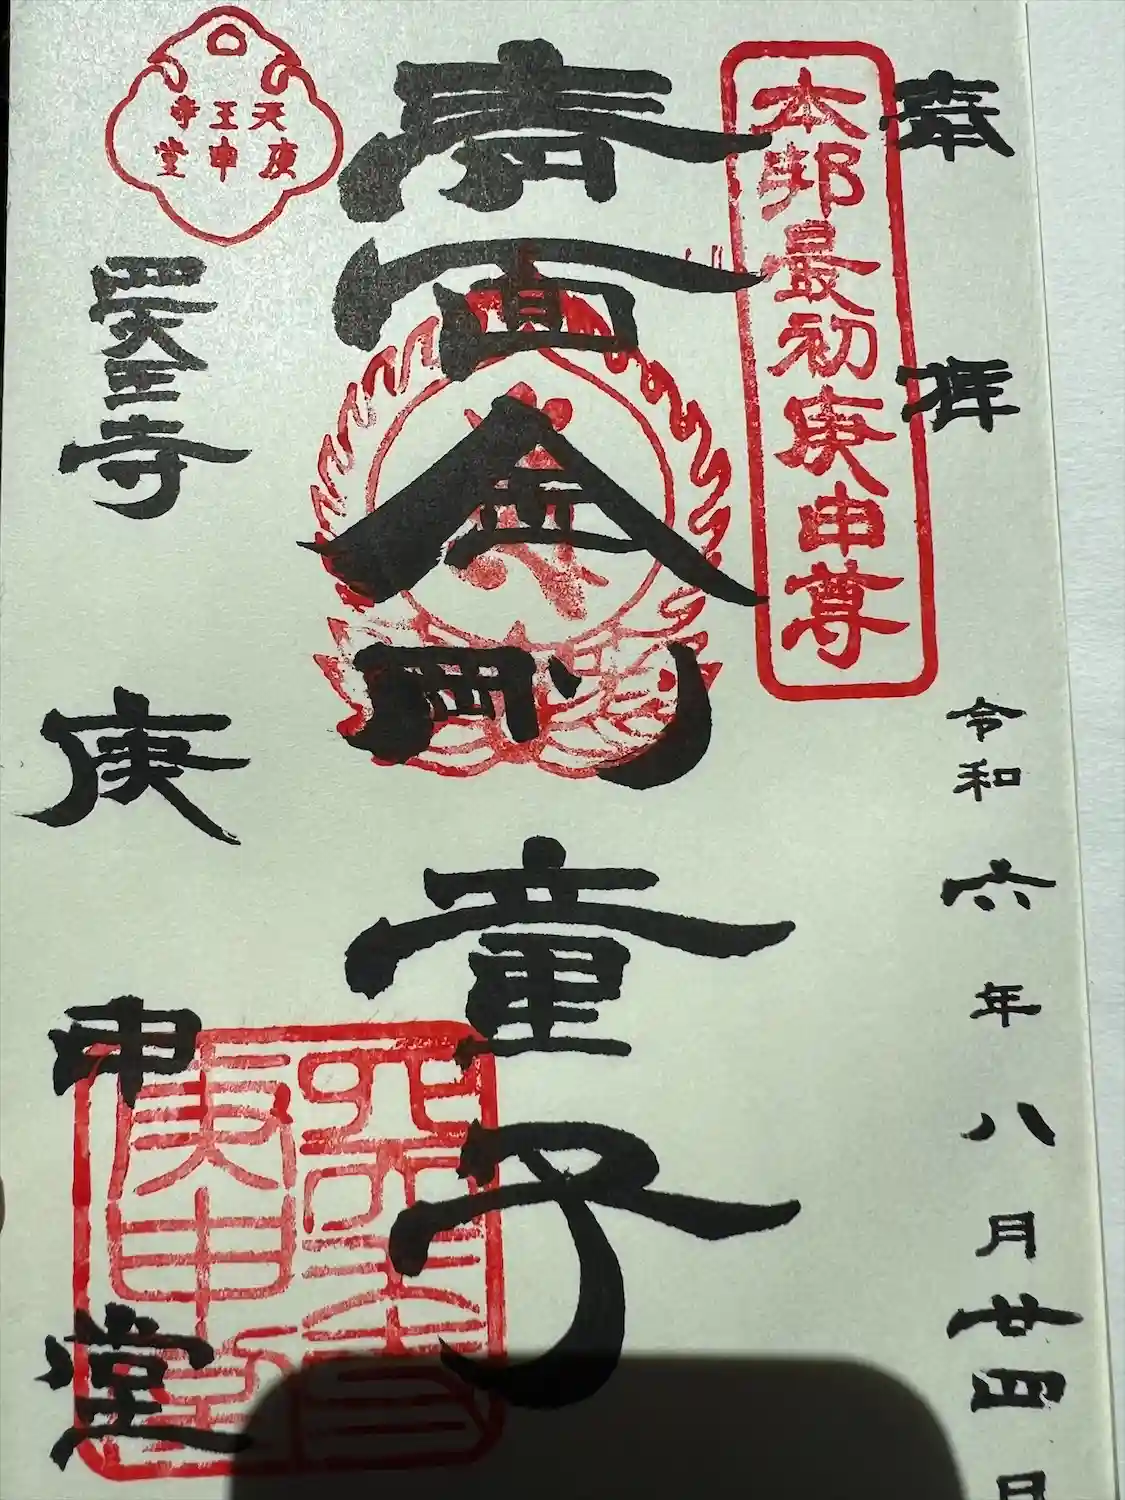 奉拝
令和六年八月廿四日
本邦最初庚申尊
青面金剛童子
天王寺
庚申堂
四天王寺
庚申堂
四天王寺
庚申堂